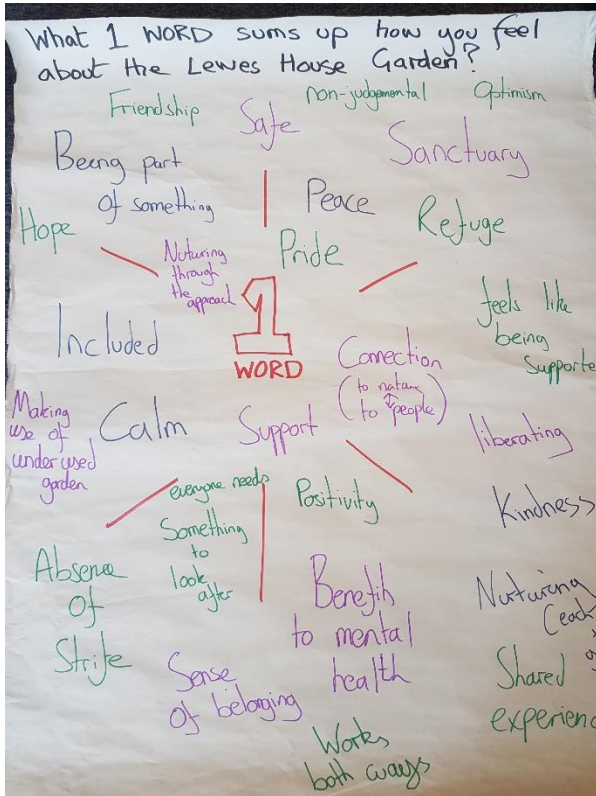 What 1 WORD sums up how you feel
about the Lewes House Garden?
Friendship
Safe
non-judgemental
Optimism
Being part
of something
Peace
Sanctuary
Hope
Nuturing
through
the
approach
Pride
Refuge
1
WORD
Included
Connection
(to nature
to people)
feels like
being
supporte
Making
use of
under used
garden
Calm
Support
liberating
everyone needs
Something
to
look
after
Positivity
Kindness
Absence
of
Strife
Benefit
to mental
health
Nurturing
(each
Sense
of belonging
Shared
experienc
Works
both ways